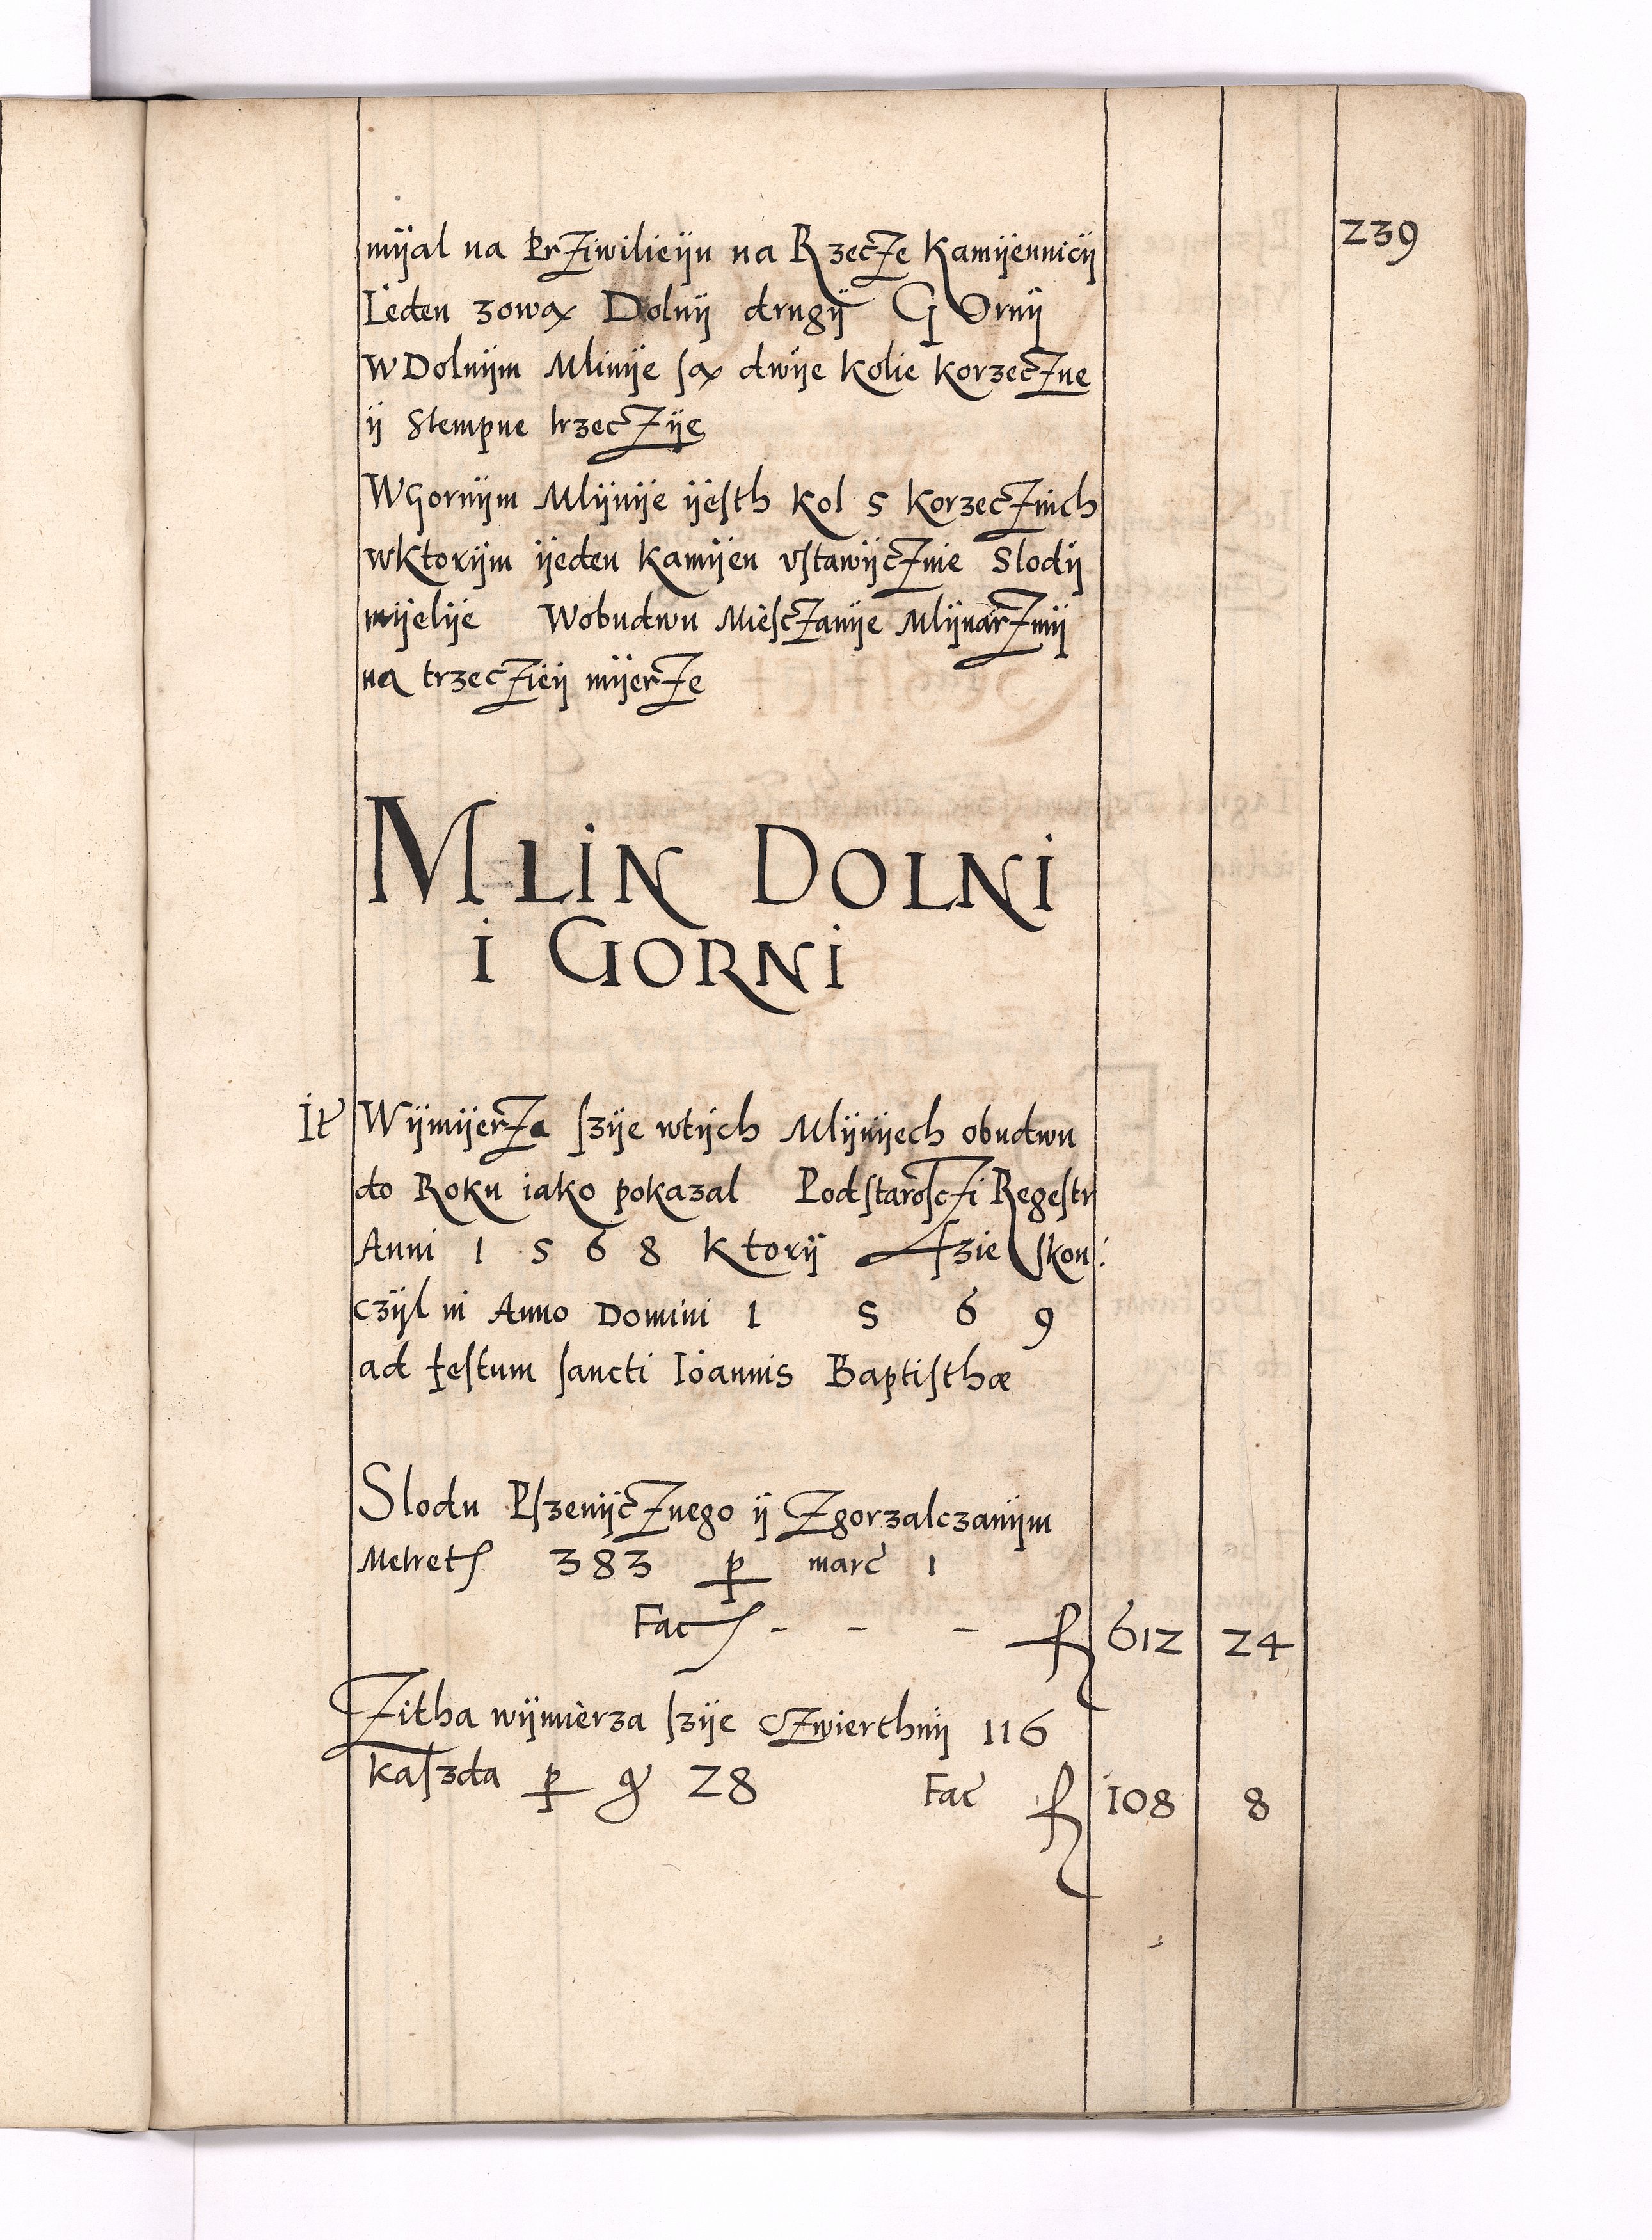 239
mÿal na PrZiwilieÿu na RzecZe Kamÿennicÿ
Ieden zową Dolnÿ drugÿ GOrnÿ
W Dolnÿm Mlinÿe są dwÿe Kolie KorzecZne
ÿ Stempne trzecZÿe
W Gornÿm Mlÿnÿe ÿesth Kol 5 KorzecZnich
wKtorÿm ÿeden Kamÿen vstawÿcZnie Slodÿ
mÿelÿe Wobudwu MiescZanÿe MlÿnarZmÿ
na trzecZieÿ mÿerZe
MLIN DOLNI
I GORNI
It WÿmÿerZa szÿe wtÿch Mlÿnÿech obudwu
do Roku iako pokazal PodstaroscZi Regestr
Anni 1568 Ktorÿ szie skon:
czÿl in Anno Domini 1569
ad festum sancti Ioannis Baptisthæ
Slodu PszenÿcZnego ÿ Zgorzalczanÿm
Metret 383 p marc 1
Fac - - - f 612 24
Zitha wÿmierza szÿe cZwierthnÿ 116
kaszda p g 28 Fac f 108 8